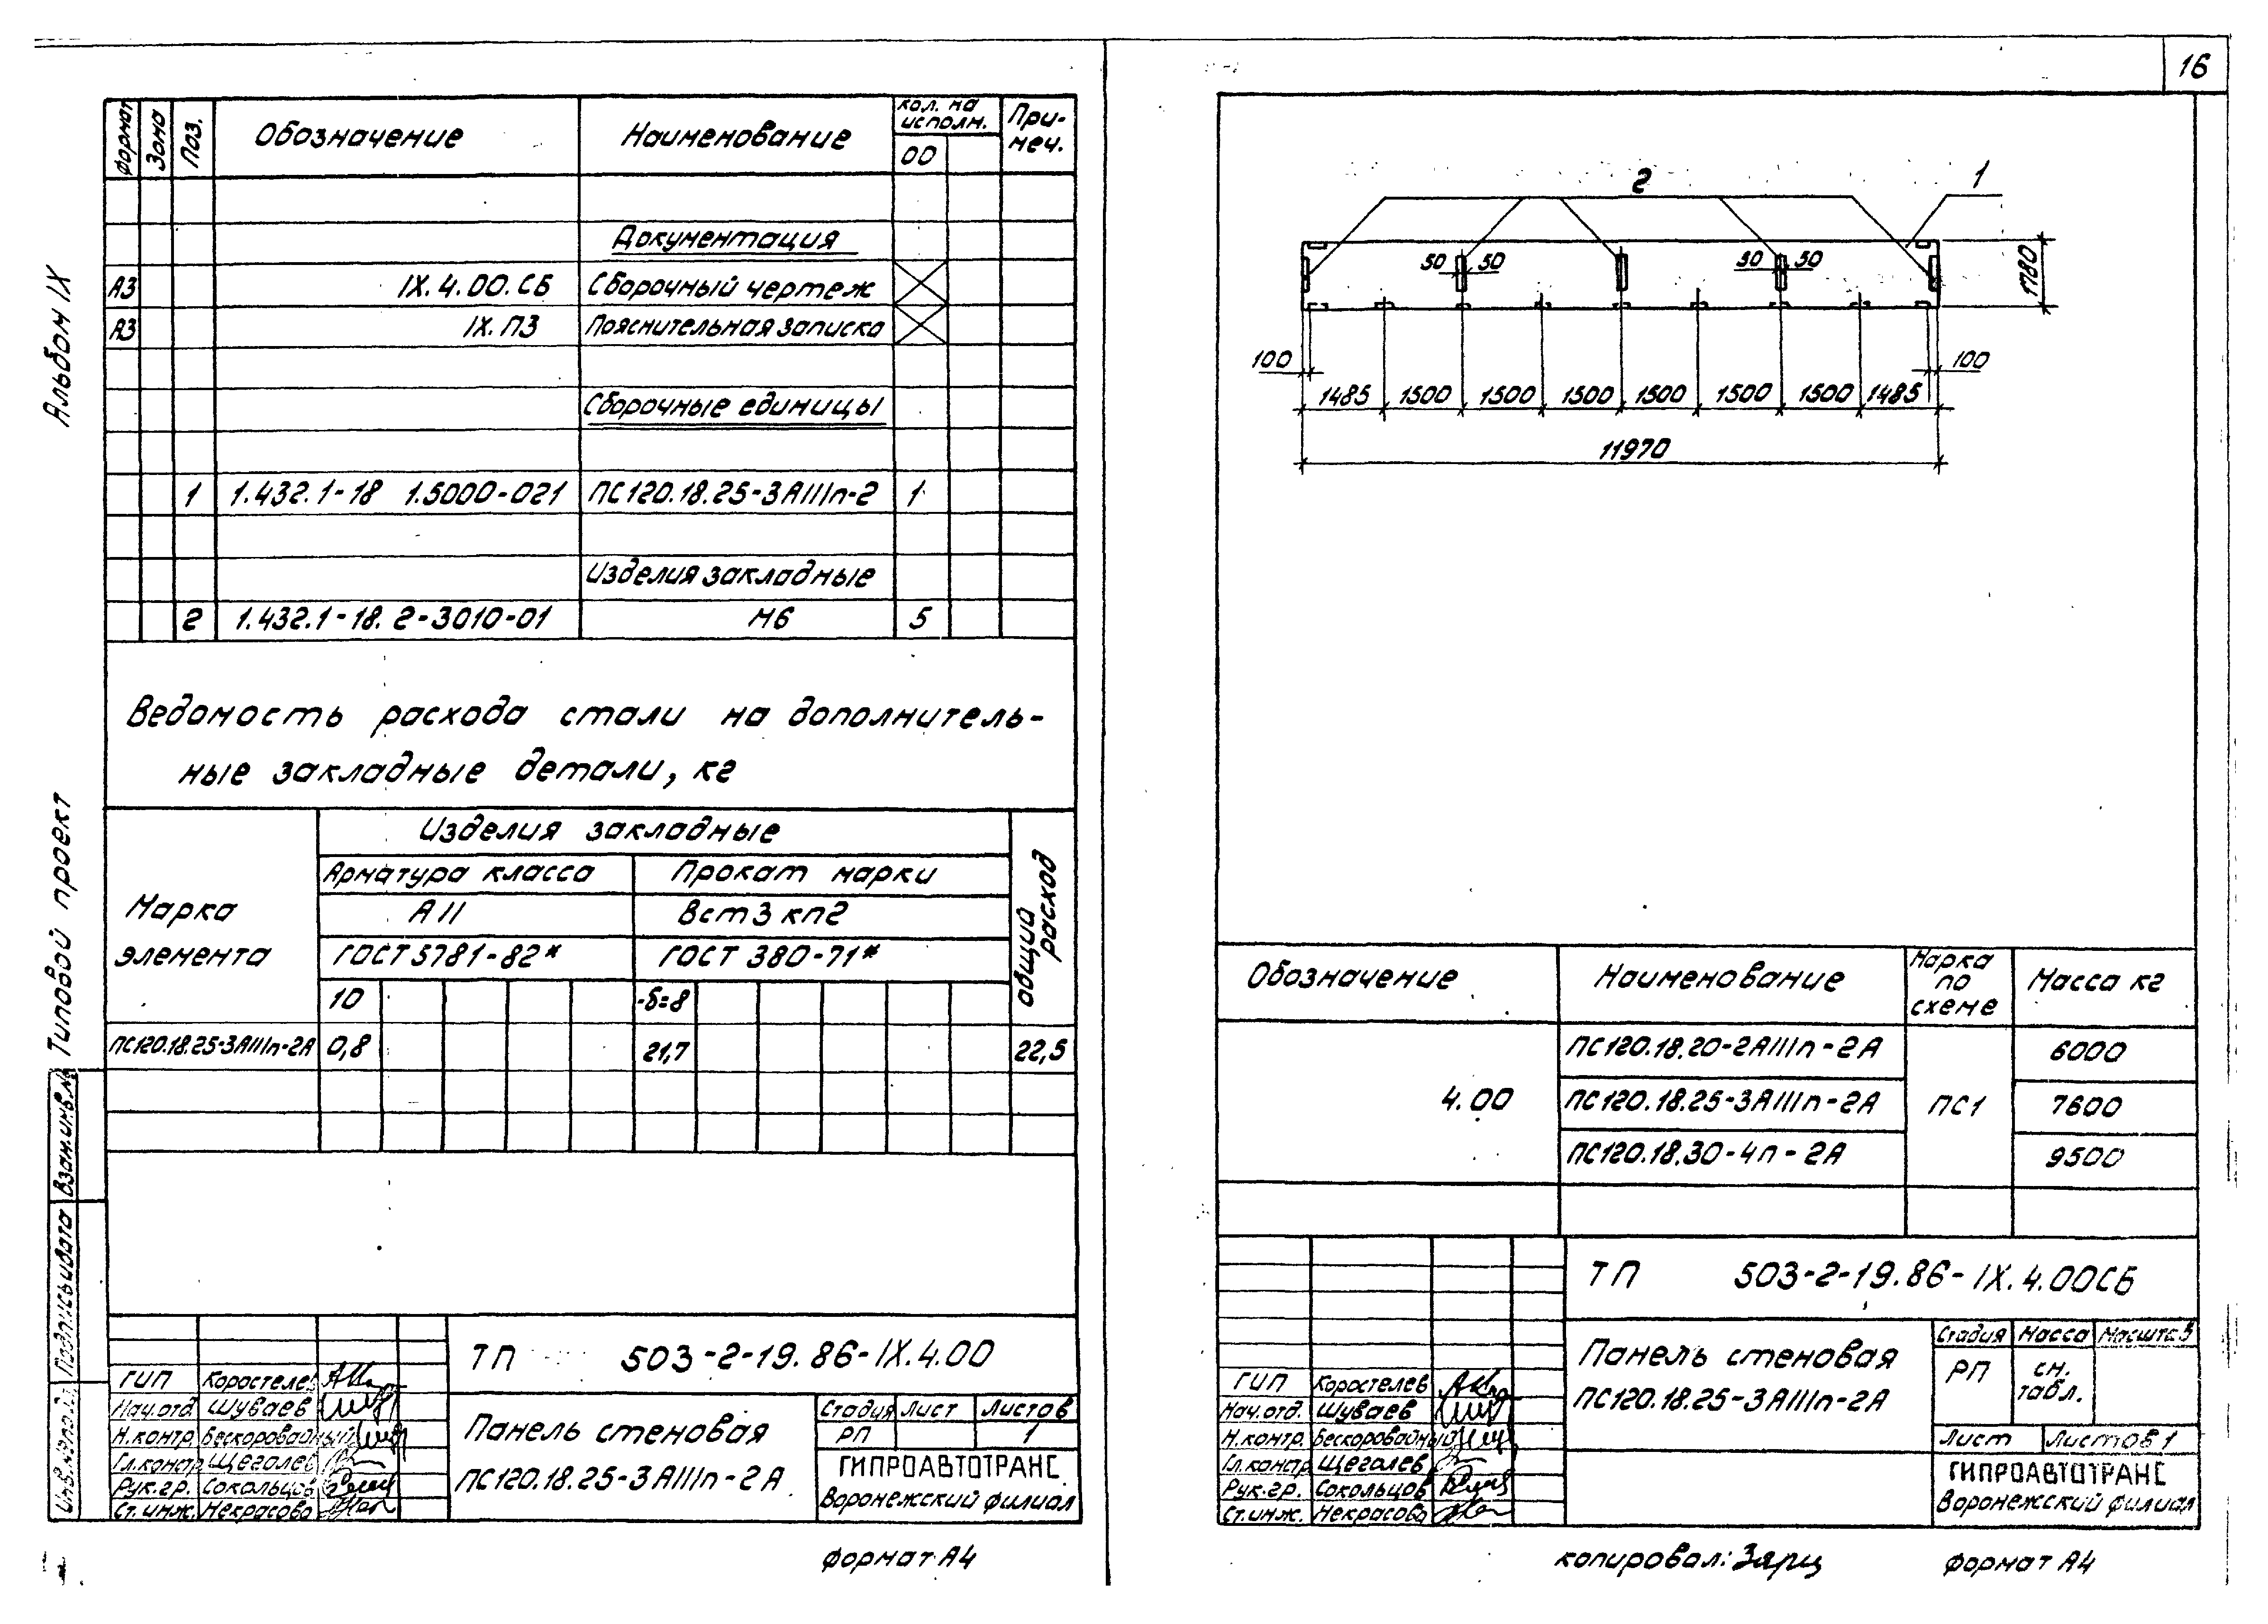 16
Альбом IX
Типовой проект
Взам.инв.№
Подпись и дата
Инв.№подл.
Формат
Зона
Поз.
Обозначение
Наименование
Кол. на исполн.
00
При-
меч.
Документация
А3 IX.4.00.СБ Сборочный чертеж
А3 IX.ПЗ Пояснительная записка
Сборочные единицы
1 1.432.1-18 1.5000-021 ПС120.18.25-3АIIIп-2 1
Изделия закладные
2 1.432.1-18. 2-3010-01 М6 5
Ведомость расхода стали на дополнитель-
ные закладные детали, кг
Марка
элемента
Изделия закладные
Общий
расход
Арматура класса Прокат марки
АII ВСт3 кп2
ГОСТ 5781-82* ГОСТ 380-71*
10 -δ=8
ПС120.18.25-3АIIIп-2А 0,8 21,7 22,5
ТП 503-2-19.86-IX.4.00
ГИП Коростелев
Нач.отд. Шуваев
Н.контр. Бескоровайный
Гл.констр. Щеголев
Рук.гр. Сокольцов
Ст.инж. Некрасова
Панель стеновая
ПС120.18.25-3АIIIп-2А
Стадия Лист Листов
РП 1
ГИПРОАВТОТРАНС
Воронежский филиал
Формат А4
2
1
50 50 50 50
1780
100 100
1485 1500 1500 1500 1500 1500 1500 1485
11970
Обозначение
Наименование
Марка
по
схеме
Масса кг
4.00
ПС120.18.20-2АIIIп-2А 6000
ПС120.18.25-3АIIIп-2А ПС1 7600
ПС120.18.30-4п-2А 9500
ТП 503-2-19.86-IX.4.00СБ
ГИП Коростелев
Нач.отд. Шуваев
Н.контр. Бескоровайный
Гл.констр. Щеголев
Рук.гр. Сокольцов
Ст.инж. Некрасова
Панель стеновая
ПС120.18.25-3АIIIп-2А
Стадия Масса Масштаб
РП см.
табл.
Лист Листов 1
ГИПРОАВТОТРАНС
Воронежский филиал
копировал: Зарц
Формат А4